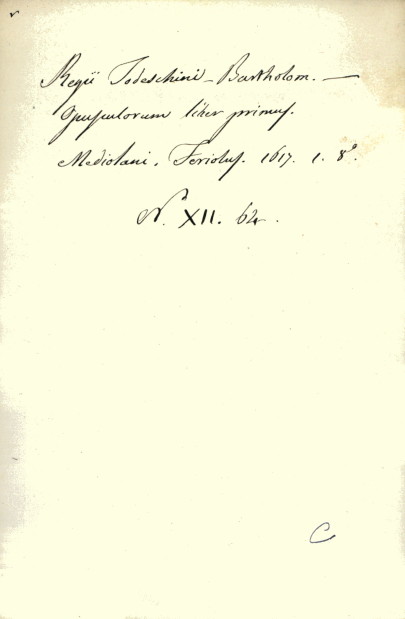 Regii Todeschini - Bartholom. —
Opusculorum liber primus.
Mediolani. Feriolus. 1617. 1. 8°.
N. XII. 64.
C